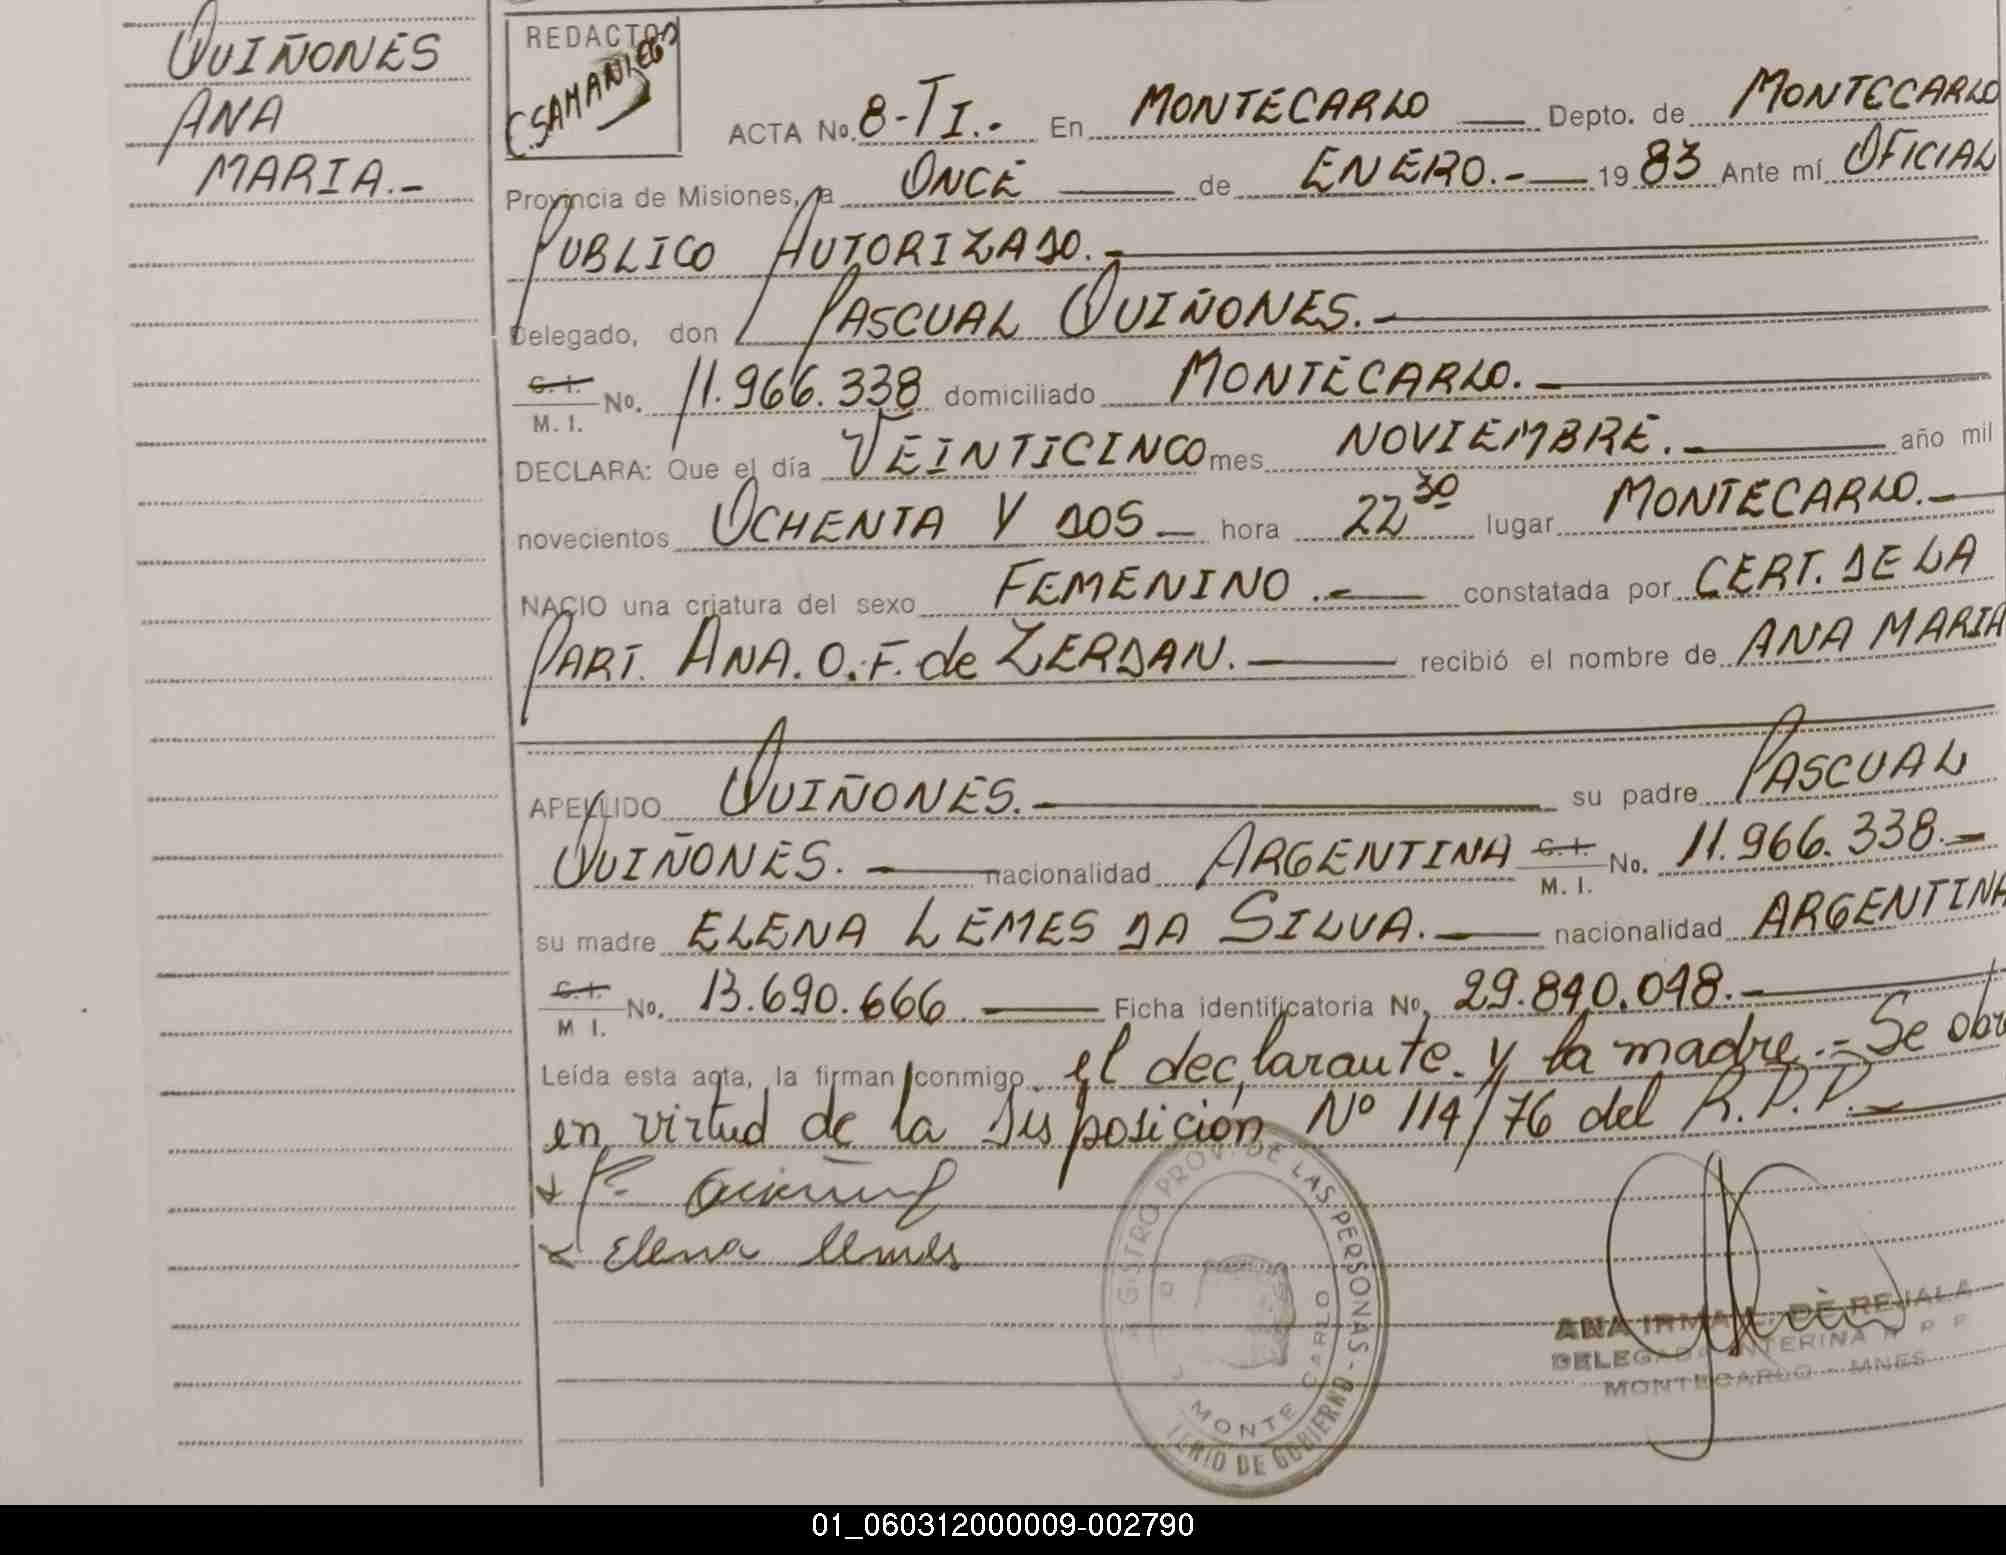 QUIÑONES
ANA
MARIA.-
REDACTOR
C. SAMANIEGO
ACTA No. 8-TI.- En MONTECARLO Depto. de MONTECARLO
Provincia de Misiones, a ONCE de ENERO.- 1983 Ante mí OFICIAL
PUBLICO AUTORIZADO.-
Delegado, don PASCUAL QUIÑONES.-
C. I.
M. I. No. 11.966.338 domiciliado MONTECARLO.-
DECLARA: Que el día VEINTICINCO mes NOVIEMBRE.- año mil
novecientos OCHENTA Y DOS - hora 22 30 lugar MONTECARLO.-
NACIO una criatura del sexo FEMENINO.- constatada por CERT. DE LA
PART. ANA. O. F. de ZERDAN. recibió el nombre de ANA MARIA
APELLIDO QUIÑONES.- su padre PASCUAL
QUIÑONES.- nacionalidad ARGENTINA C. I. M. I. No. 11.966.338.-
su madre ELENA LEMES DA SILVA.- nacionalidad ARGENTINA
C. I.
M I. No. 13.690.666 Ficha identificatoria No. 29.840.048.-
Leída esta acta, la firman conmigo el declarante y la madre.- Se obr
en virtud de la Disposición Nº 114/76 del R.P.P.-
P. Quiñones
Elena Lemes
GISTRO PROV. DE LAS PERSONAS - MONTE CARLO
TERIO DE GOBIERNO
ANA IRMA L. DE REJALA
DELEGADA INTERINA R P P
MONTECARLO - MNES
01_060312000009-002790